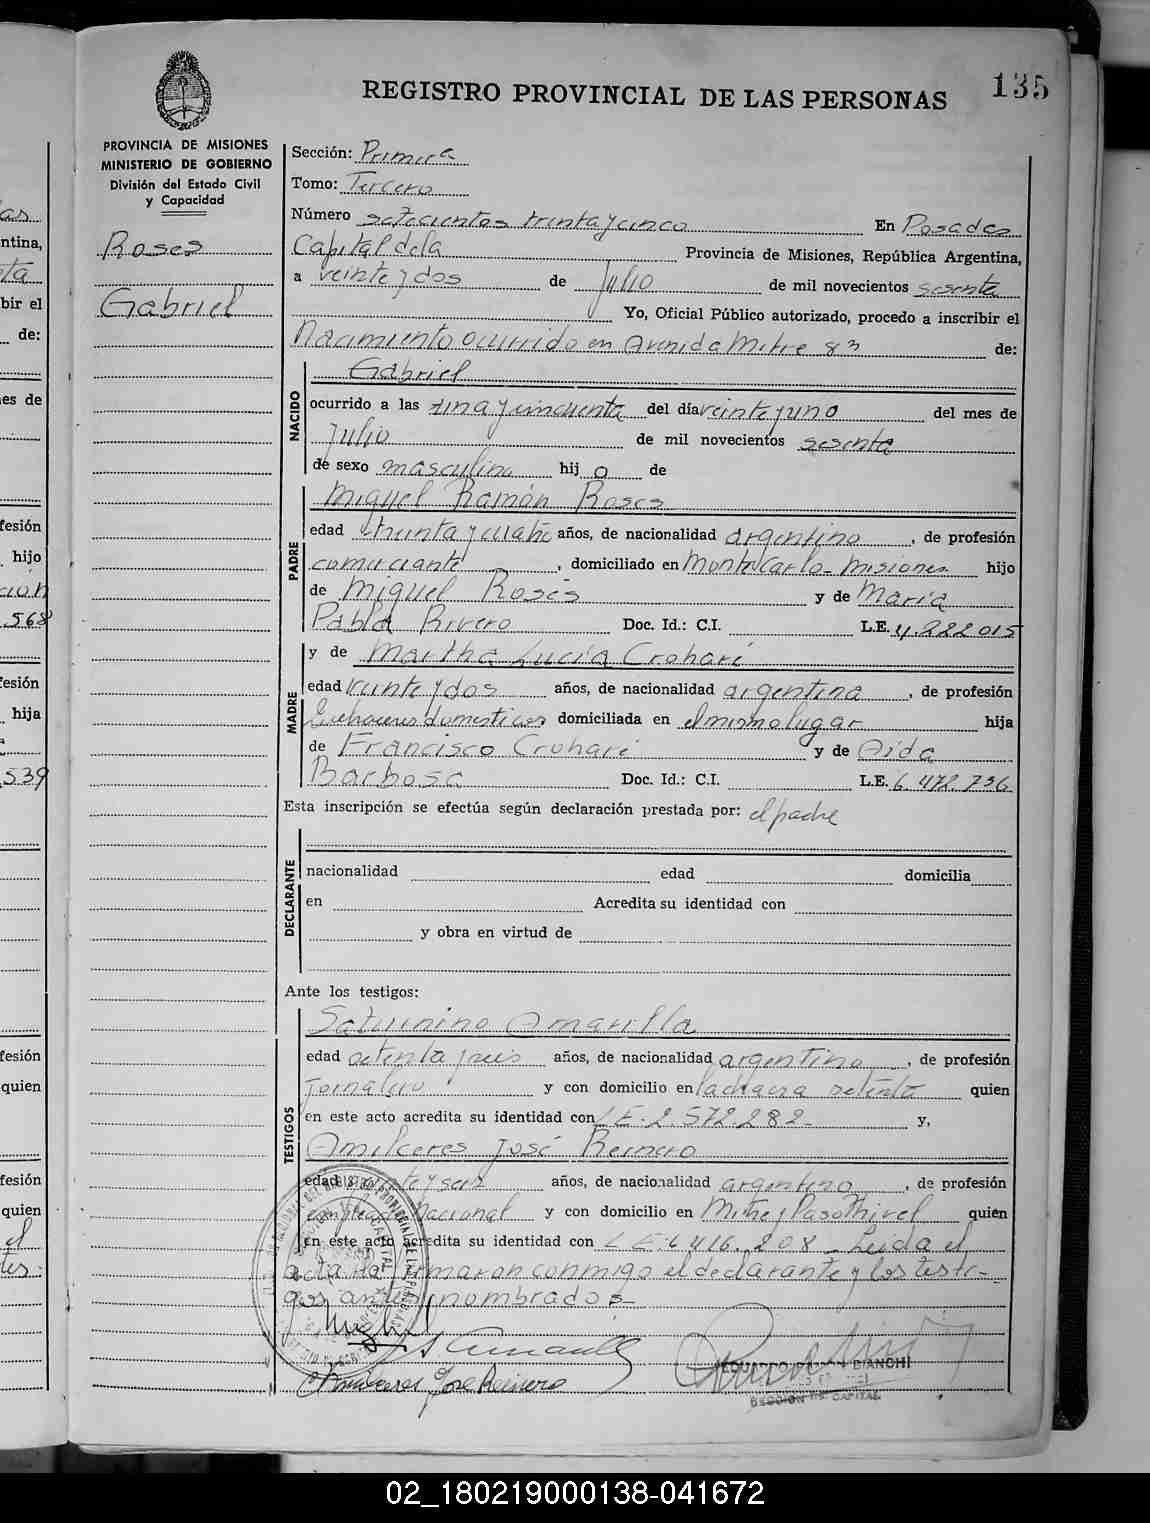 135
REGISTRO PROVINCIAL DE LAS PERSONAS
PROVINCIA DE MISIONES
MINISTERIO DE GOBIERNO
División del Estado Civil
y Capacidad
Roses
Gabriel
Sección: Primera
Tomo: Tercero
Número setecientos treinta y cinco En Posadas
Capital de la Provincia de Misiones, República Argentina,
a veinte y dos de Julio de mil novecientos sesenta
Yo, Oficial Público autorizado, procedo a inscribir el
Nacimiento ocurrido en Avenida Mitre 83 de:
NACIDO
Gabriel
ocurrido a las una y cincuenta del día veinte y uno del mes de
Julio de mil novecientos sesenta
de sexo masculino hij o de
PADRE
Miguel Ramón Roses
edad treinta y años, de nacionalidad argentino, de profesión
comerciante, domiciliado en Montecarlo - Misiones hijo
de Miguel Roses y de María
Pabla Rivero Doc. Id.: C.I. L.E. 4.222.015
MADRE
y de Martha Lucía Croharé
edad veinte y dos años, de nacionalidad argentina, de profesión
Quehaceres domesticos domiciliada en el mismo lugar hija
de Francisco Croharé y de Aida
Barbosa Doc. Id.: C.I. L.E. 6.472.736
Esta inscripción se efectúa según declaración prestada por: el padre
DECLARANTE
nacionalidad edad domicilia
en Acredita su identidad con
y obra en virtud de
Ante los testigos:
TESTIGOS
Saturnino Amarilla
edad setenta y tres años, de nacionalidad argentino, de profesión
Jornalero y con domicilio en la chacra setenta quien
en este acto acredita su identidad con L.E. 2.572.282 y,
Amilceres José Reinero
edad y seis años, de nacionalidad argentino, de profesión
empleado Nacional y con domicilio en Mitre y quien
en este acto acredita su identidad con L.E. 416.208 - Leida el
acta la firmaron conmigo el declarante y los testi-
gos antes nombrados -
José Reinero
EDUARDO BIANCHI
SECCION DE CAPITAL
02_180219000138-041672